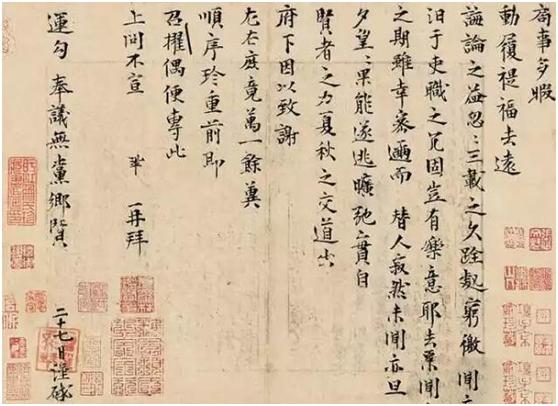 局事多暇
動履禔福去遠
誨論之益忽忽三載之久跧處窮徼
汨于吏職之冗固豈有樂意耶去
之期雖幸密邇而替人寂然未聞亦旦
夕望望果能遂逃曠弛實自
賢者之力夏秋之交道出
府下因以致謝
左右庶竟萬一餘冀
順序珍重前即
召擢偶便專此
上問不宣 鞏 再拜
運勾奉議無黨鄉賢 二十七日謹啓